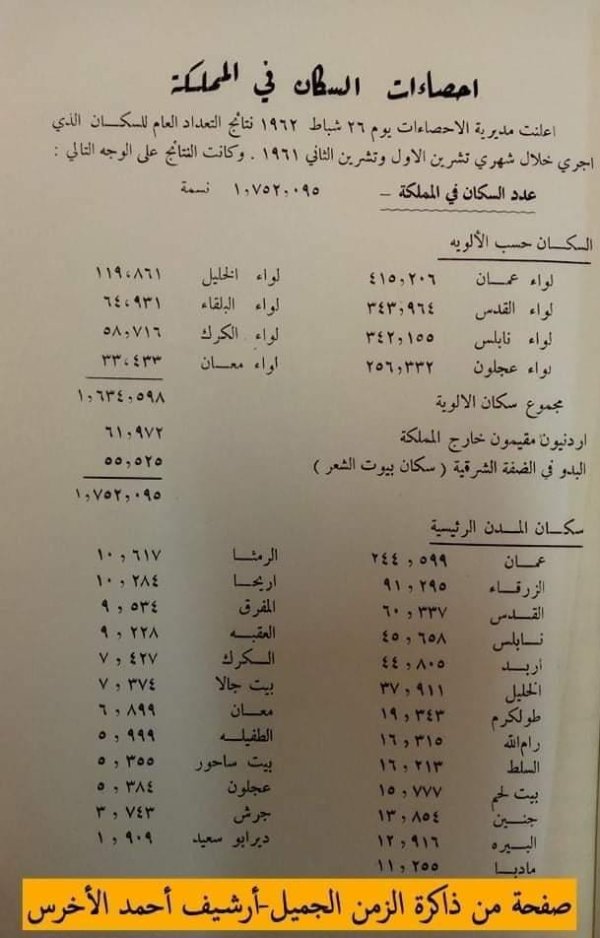 احصاءات السكان في المملكة
اعلنت مديرية الاحصاءات يوم ٢٦ شباط ١٩٦٢ نتائج التعداد العام للسكان الذي
اجري خلال شهري تشرين الاول وتشرين الثاني ١٩٦١ . وكانت النتائج على الوجه التالي :
عدد السكان في المملكة – ١,٧٥٢,٠٩٥ نسمة
السكان حسب الألويه
لواء عمان ٤١٥,٢٠٦ لواء الخليل ١١٩,٨٦١
لواء القدس ٣٤٣,٩٦٤ لواء البلقاء ٦٤,٩٣١
لواء نابلس ٣٤٢,١٥٥ لواء الكرك ٥٨,٧١٦
لواء عجلون ٢٥٦,٣٣٢ لواء معان ٣٣,٤٣٣
مجموع سكان الالوية ١,٦٣٤,٥٩٨
اردنيون مقيمون خارج المملكة ٦١,٩٧٢
البدو في الضفة الشرقية ( سكان بيوت الشعر ) ٥٥,٥٢٥
١,٧٥٢,٠٩٥
سكان المدن الرئيسية
عمان ٢٤٤,٥٩٩ الرمثا ١٠,٦١٧
الزرقاء ٩١,٢٩٥ اريحا ١٠,٢٨٤
القدس ٦٠,٣٣٧ المفرق ٩,٥٣٤
نابلس ٤٥,٦٥٨ العقبه ٩,٢٢٨
أربد ٤٤,٨٠٥ الكرك ٧,٤٢٧
الخليل ٣٧,٩١١ بيت جالا ٧,٣٧٤
طولكرم ١٩,٣٤٣ معان ٦,٨٩٩
رام‌الله ١٦,٣١٥ الطفيله ٥,٩٩٩
السلط ١٦,٢١٣ بيت ساحور ٥,٣٥٥
بيت لحم ١٥,٧٧٧ عجلون ٥,٣٨٤
جنين ١٣,٨٥٤ جرش ٣,٧٤٣
البيره ١٢,٩١٦ ديرابو سعيد ١,٩٠٩
مادبا ١١,٢٥٥
صفحة من ذاكرة الزمن الجميل-أرشيف أحمد الأخرس